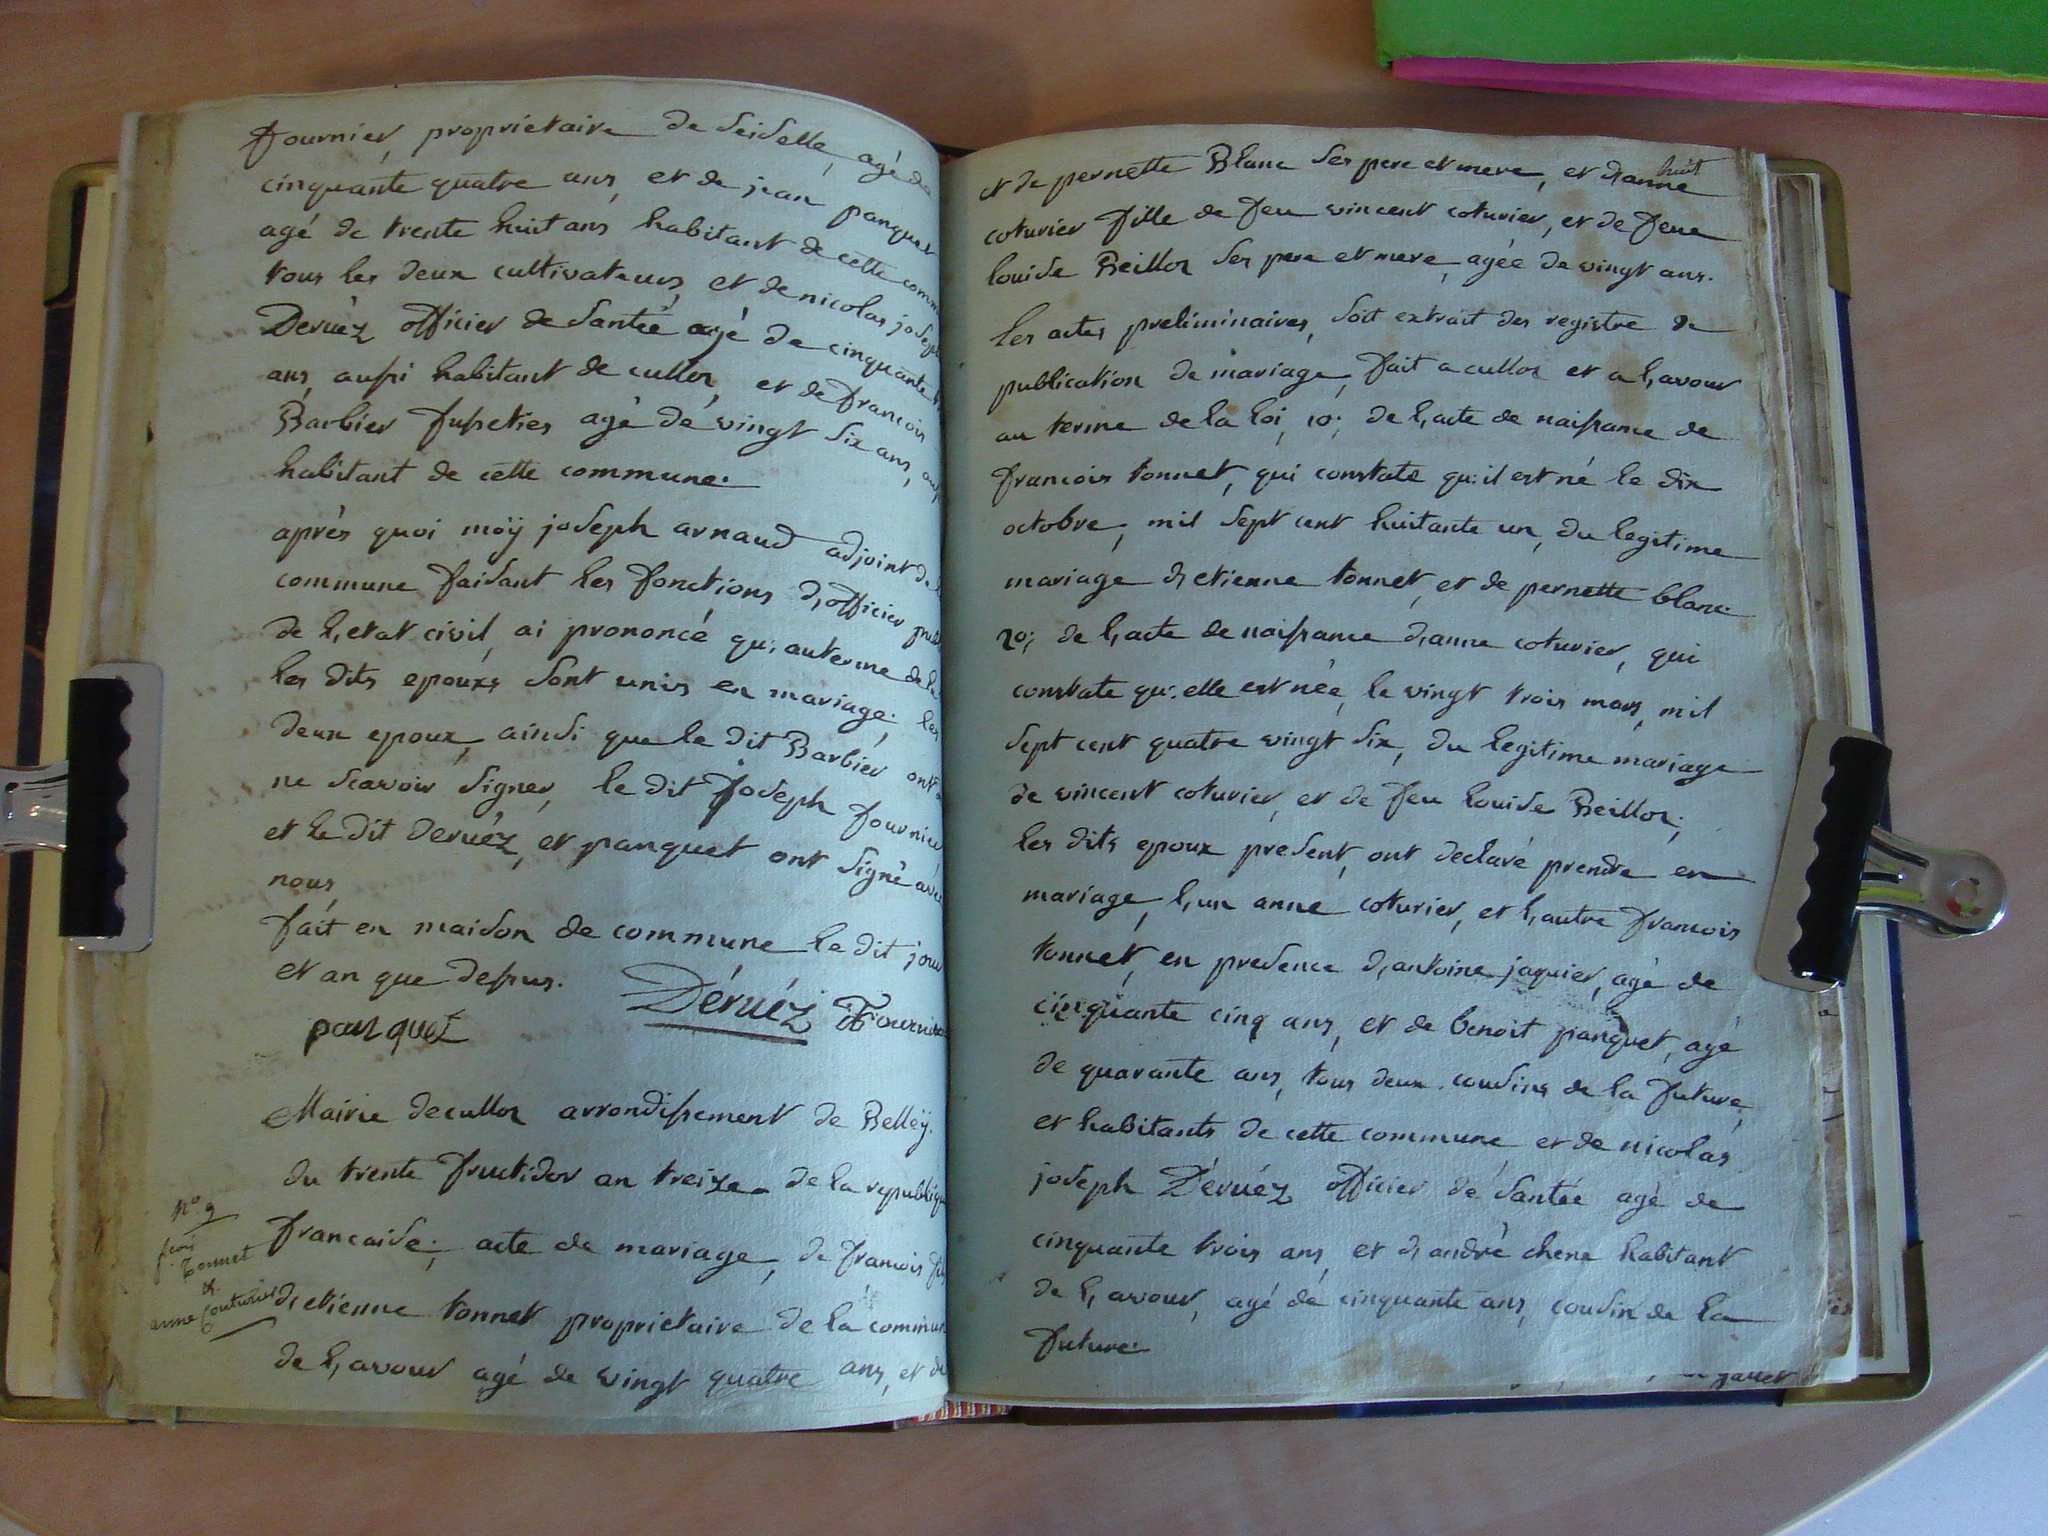 fournier, proprietaire de seiselle, agé de
cinquante quatre ans, et de jean panquet
agé de trente huit ans habitant de cette comm
tous les deux cultivateurs, et de nicolas joseph
Deruéz officier de santée agé de cinquante
ans, aussi habitant de culloz, et de francois
Barbier agé dé vingt six ans,
habitant de cette commune.
après quoi möÿ joseph arnaud adjoint de
commune faisant les fonctions d,officier
de l,etat civil, ai prononcé qu; au terme de la
les dits epouxs sont unis en mariage; les
deux epoux, ainsi que le dit Barbier ont
ne scavoir signer, le dit Joseph fournier
et le dit deruéz, et panquet ont signé avec
nous,
fait en maison de commune le dit jour
et an que dessus.
panquet Déruéz Fournier
Mairie deculloz arrondissement de Belleÿ.
du trente fructidor an treize de la republique
No. 9
francaise; acte de mariage, de francois fils
fçois Tonnet
d,etienne tonnet proprietaire de la commun
& anne Couturier
de l,avour agé de vingt quatre ans, et de
et de pernette Blanc ses pere et mere, et d,anne
huit
coturier fille de feu vincent coturier, et de feue
louise Beilloz ses pere et mere, agée de vingt ans.
les actes preliminaires, soit extrait des registre de
publication de mariage, fait a culloz et a l,avour
au terme de la loi, 10; de l,acte de naissance de
francois tonnet, qui constate qu;il est né le dix
octobre, mil sept cent huitante un, du legitime
mariage d,etienne tonnet, et de pernette blanc.
20; de l,acte de naissance d,anne coturier, qui
constate qu;elle est née, le vingt trois mars, mil
sept cent quatre vingt six, du legitime mariage
de vincent coturier, et de feu louise Beilloz;
les dits epoux present, ont declaré prendre en
mariage, l,un anne coturier, et l,autre francois
tonnet, en presence d,antoine jaquier, agé de
cinquante cinq ans, et de benoit panquet, agé
de quarante ans, tous deux cousins de la future,
et habitants de cette commune et de nicolas
joseph Déruéz officier dé santée agé de
cinquante trois ans, et d,andré chene habitant
de l,avour, agé dé cinquante ans, cousin de la
future.